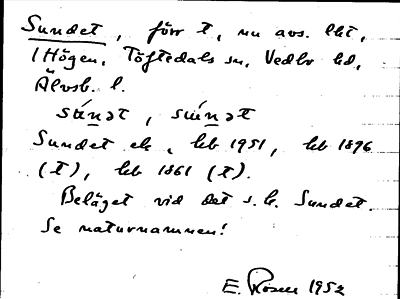 Sundet, förr t, nu avs. lht,
1 Högen, Töftedals sn, Vedbo hd,
Älvsb. l.
sún̲ət, sʉ́n̲ət
Sundet ek., hb 1951, hb 1896
(t), hb 1861 (t).
Beläget vid det s.k. Sundet.
Se naturnamnen!
E. Rosén 1952